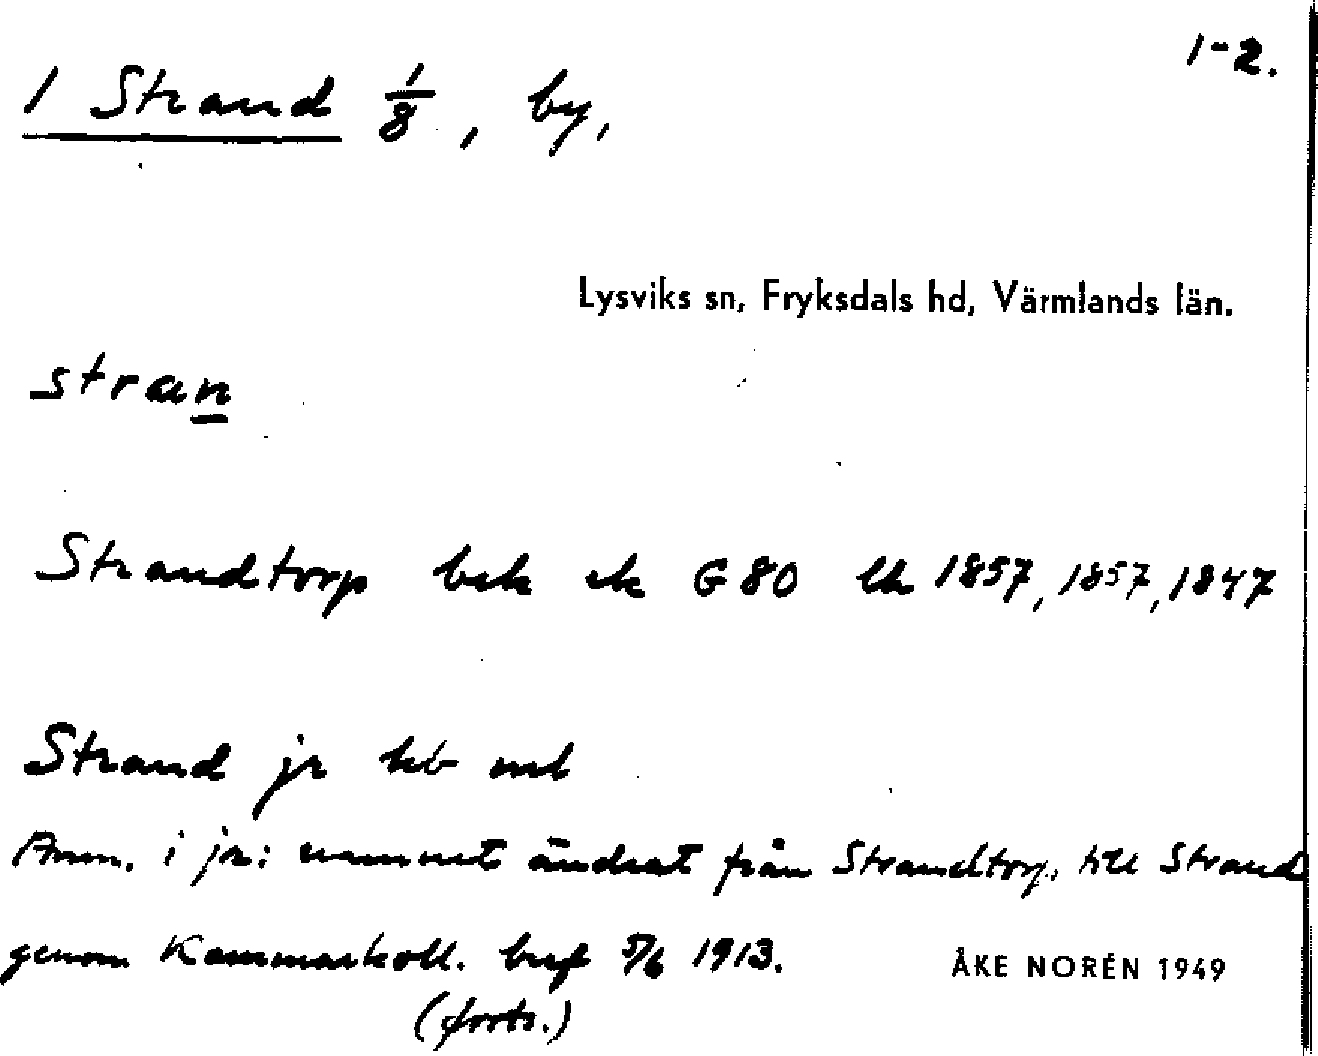 1-2.
1 Strand 1/8, by,
Lysviks sn, Fryksdals hd, Värmlands län.
stran
Strandtorp bek ek G 80 lk 1857, 1857, 1847
Strand jr kb ml
Anm. i jr: namnet ändrat från Strandtorp till Strand
genom Kammarkoll. bref 5/6 1913.
ÅKE NORÉN 1949
(forts.)